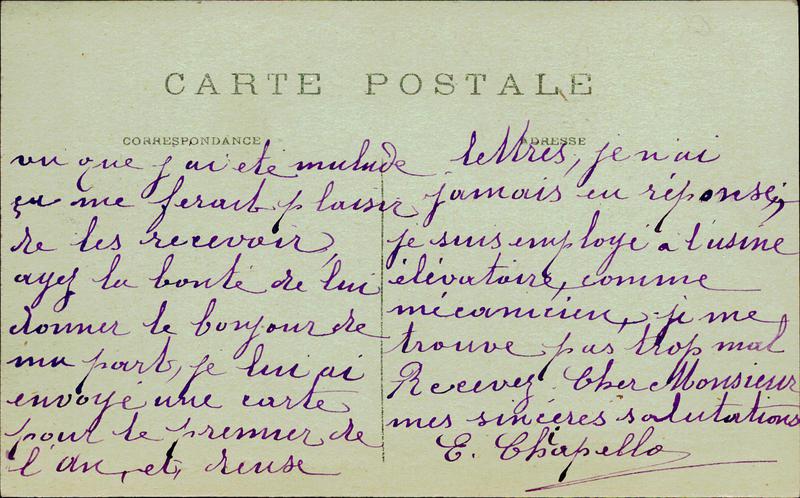 CARTE POSTALE
CORRESPONDANCE
vu que j'ai eté malade
ça me ferait plaisir
de les recevoir,
ayez la bonté de lui
donner le bonjour de
ma part, je lui ai
envoyé une carte
pour le premier de
l'an, et, deuse
ADRESSE
lettres, je n'ai
jamais eu réponse,
je suis employé a l'usine
élévatoire, comme
mécanicien, je me
trouve pas trop mal
Recevez Cher Monsieur
mes sincères salutations
E. Chapello